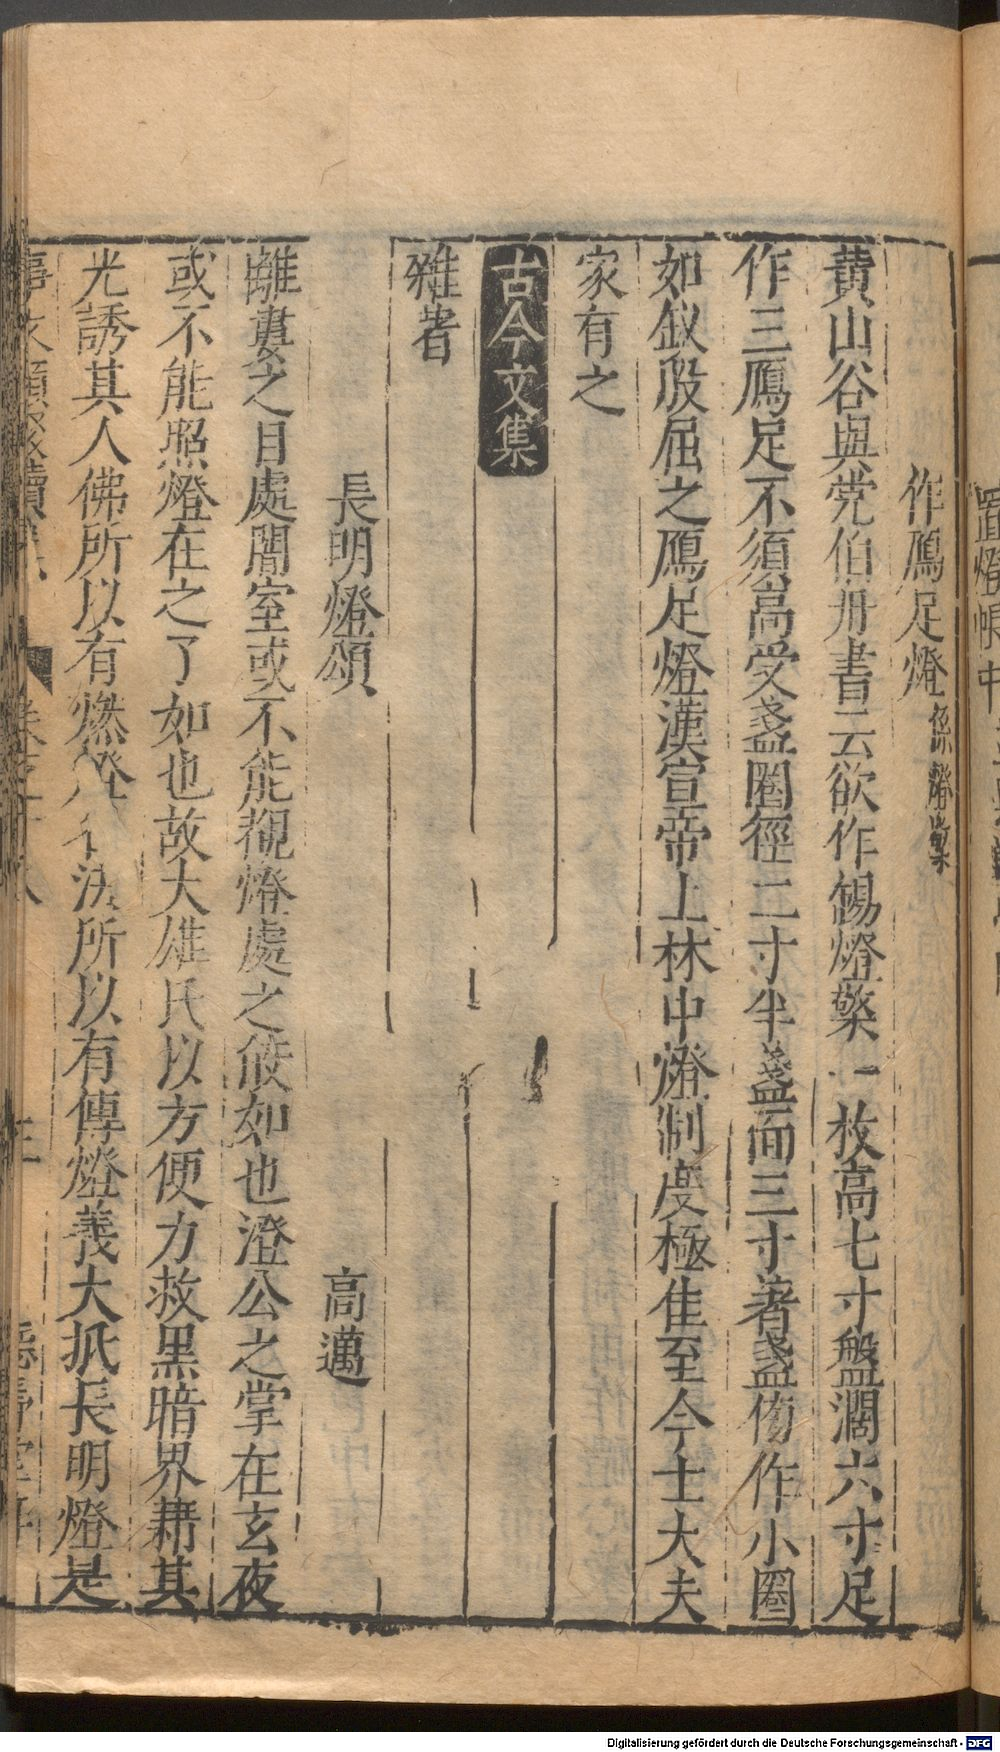 作鴈足燈係燈檠
黄山谷與党伯舟書云欲作錫燈檠一枚高七寸盤濶六寸足
作三鴈足不須高受盞圈徑二寸半盞面三寸著盞傍作小圈
如釵股屈之鴈足燈漢宣帝上林中燈制度極佳至今士大夫
家有之
古今文集
雜著
長明燈頌 高邁
離婁之目處闇室或不能覩燈處之皎如也澄公之掌在玄夜
或不能照燈在之了如也故大雄氏以方便力救黒暗界藉其
光誘其人佛所以有燃燈 法所以有傳燈義大抵長明燈是
置燈帳中
Digitalisierung gefördert durch die Deutsche Forschungsgemeinschaft - DFG